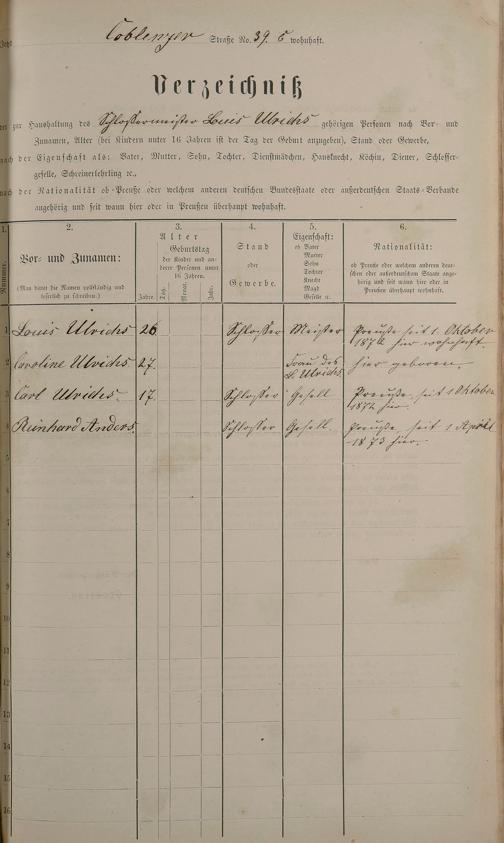 Coblenzer Straße No. 39. c wohnhaft.
Verzeichniß
der zur Haushaltung des Schlossermeister Louis Ulrichs gehörigen Personen nach Vor- und
Zunamen, Alter (bei Kindern unter 16 Jahren ist der Tag der Geburt anzugeben), Stand oder Gewerbe,
nach der Eigenschaft als: Vater, Mutter, Sohn, Tochter, Dienstmädchen, Hausknecht, Köchin, Diener, Schlosser-
geselle, Schreinerlehrling ꝛc.,
nach der Nationalität ob Preuße oder welchem anderen deutschen Bundesstaate oder außerdeutschen Staats-Verbande
angehörig und seit wann hier oder in Preußen überhaupt wohnhaft.
1.
Nummer.
2.
Vor- und Zunamen:
(Man bittet die Namen vollständig und
leserlich zu schreiben.)
3.
Alter
Geburtstag
der Kinder und an-
derer Personen unter
16 Jahren.
Jahre. Tag. Monat. Jahr.
4.
Stand
oder
Gewerbe.
5.
Eigenschaft:
ob Vater
Mutter
Sohn
Tochter
Knecht
Magd
Geselle ꝛc.
6.
Nationalität:
ob Preuße oder welchem anderen deut-
schen oder außerdeutschen Staate ange-
hörig und seit wann hier oder in
Preußen überhaupt wohnhaft.
1 Louis Ulrichs 26 Schlosser Meister Preuße seit 1. Oktober
1872 hier wohnhaft.
2 Caroline Ulrichs 27. Frau des
L. Ulrichs hier geboren.
3 Carl Ulrichs. 17. Schlosser Gesell Preuße seit 1 Oktober
1872 hier.
4 Reinhard Anders. Schlosser Gesell. Preuße seit 1 April
1873 hier.
5
6
7
8
9
10
11
12
13
14
15
16